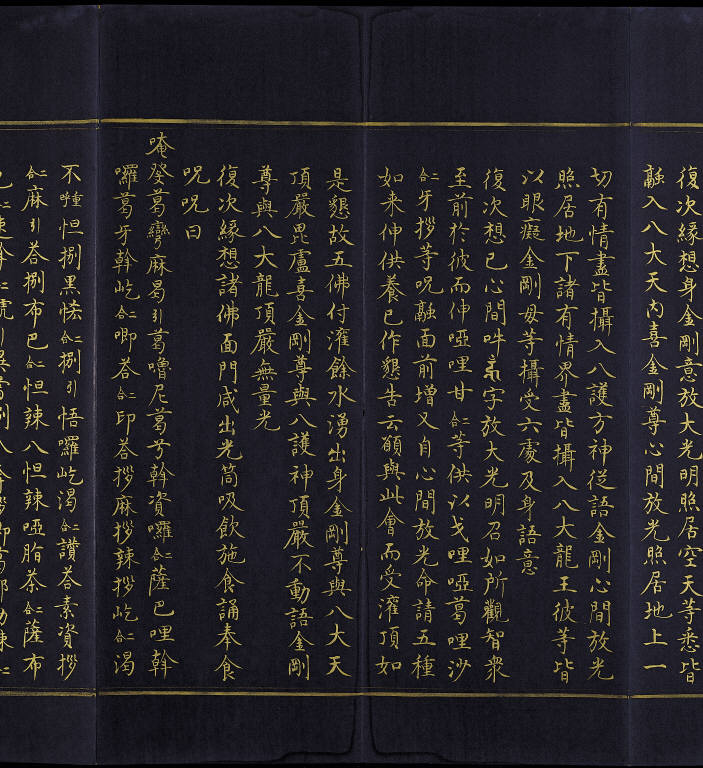 復次緣想身金剛意放大光明照居空天等悉皆
融入八大天內喜金剛尊心間放光照居地上一
切有情盡皆攝入八護方神從語金剛心間放光
照居地下諸有情界盡皆攝入八大龍王彼等皆
以眼癡金剛母等攝受六處及身語意
復次想已心間吽字放大光明召如所觀智衆
至前於彼而伸啞哩甘合二等供以戈哩啞葛哩沙
合二牙拶等呪融面前增又自心間放光命請五種
如来伸供養已作懇告云願與此會而受灌頂如
是懇故五佛付灌餘水湧出身金剛尊與八大天
頂嚴毘盧喜金剛尊與八護神頂嚴不動語金剛
尊與八大龍頂嚴無量光
復次緣想諸佛面門咸出光筒吸飲施食誦奉食
呪呪曰
唵癸葛巒麻曷引葛嚕尼葛兮斡資囉合二薩巴哩斡
囉葛牙斡屹合二唧荅合二印荅拶麻拶辣拶屹合二渴
不重呼怛捌黑怯合二捌引悟囉屹渴合二讚荅素資拶
合二麻引荅捌布巴合二怛辣八怛辣啞胎荼合二薩布